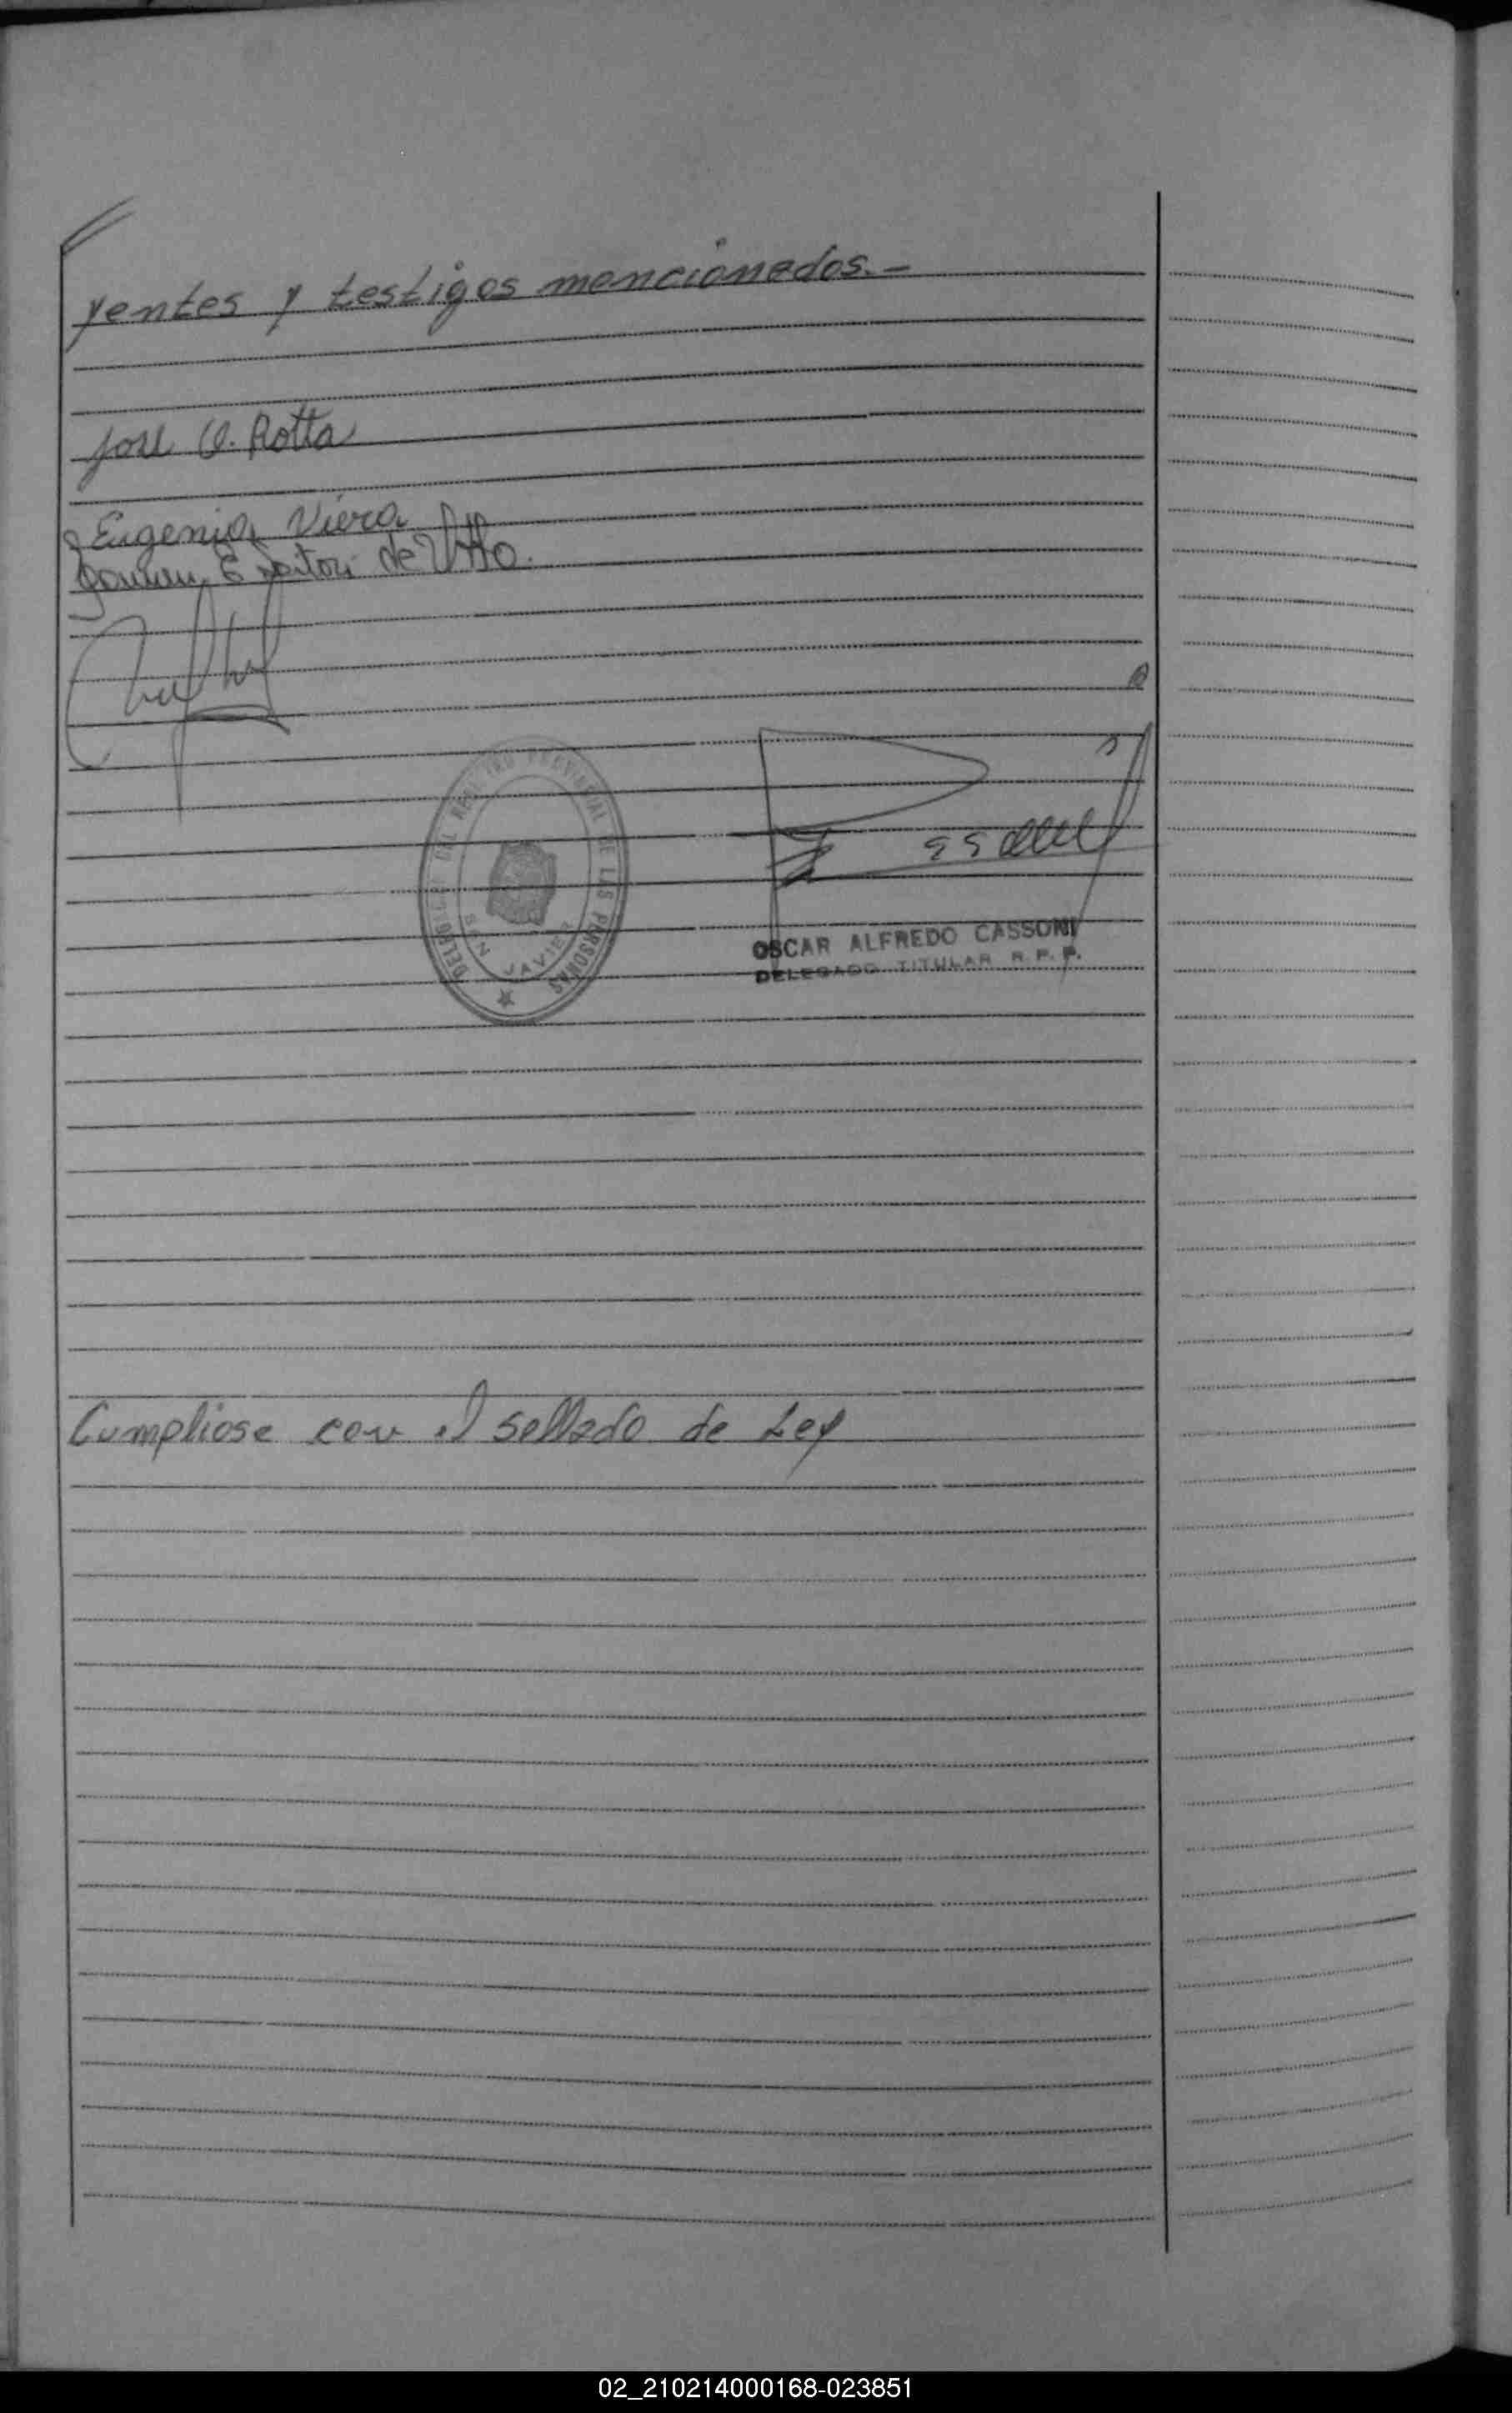 yentes y testigos mencionados.-
José O. Rotta
Eugenia Viera
E Sartori de Otto.
DELEGACION DEL REGISTRO PROVINCIAL DE LAS PERSONAS
SAN JAVIER
OSCAR ALFREDO CASSONI
DELEGADO TITULAR R. P. P.
Cumpliose con el sellado de Ley
02_210214000168-023851